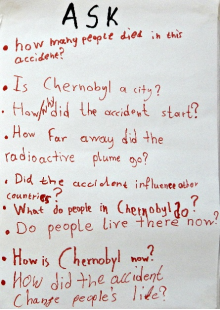 ASK
• how many people died in this
accident?
• Is Chernobyl a city?
• How/why did the accident start?
• How far away did the
radioactive plume go?
• Did the accident influence other
countries?
• What do people in Chernobyl do?
• Do people live there now?
• How is Chernobyl now?
• How did the accident
Change people's life?